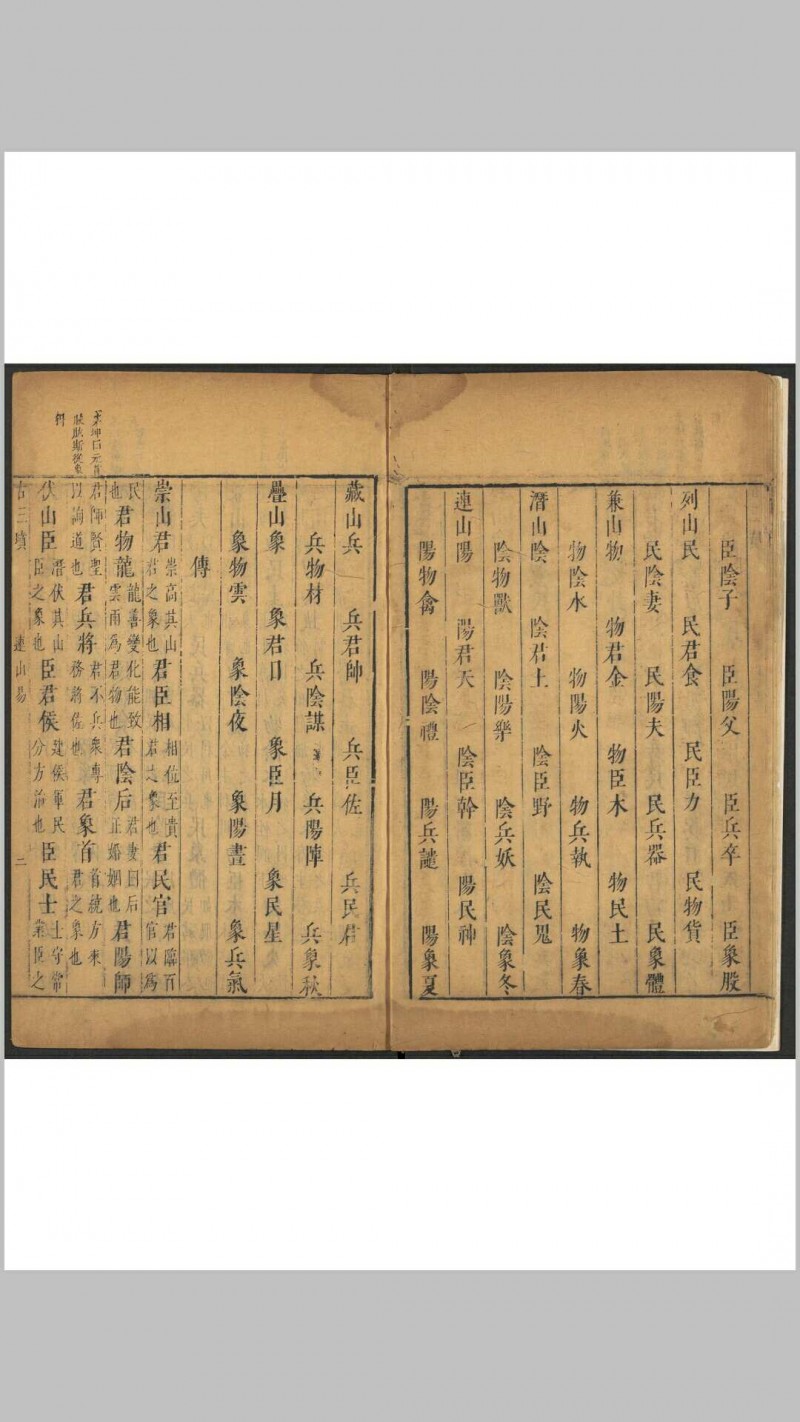 臣陰子 臣陽父 臣兵卒 臣象股
列山民 民君食 民臣力 民物貨
民陰妻 民陽夫 民兵器 民象體
兼山物 物君金 物臣木 物民土
物陰水 物陽火 物兵執 物象春
潛山陰 陰君土 陰臣野 陰民鬼
陰物獸 陰陽樂 陰兵妖 陰象冬
連山陽 陽君天 陰臣幹 陽民神
陽物禽 陽陰禮 陽兵譴 陽象夏
藏山兵 兵君帥 兵臣佐 兵民君
兵物材 兵陰謀 兵陽陣 兵象秋
疊山象 象君日 象臣月 象民星
象物雲 象陰夜 象陽晝 象兵氣
傳
崇山君 崇高其山君之象也 君臣相 相位至貴君之象也 君民官 君臨百官以為
民也 君物龍 龍善變化能致雲雨為君物也 君陰后 君妻曰后正婚姻也 君陽師
君陣賢聖以詢道也 君兵將 君不兵衆專務將佐也 君象首 首統方來君之象也
伏山臣 潛伏其山臣之象也 臣君侯 建侯軍民分方治也 臣民士 士守常業臣之
古三墳 連山易 二